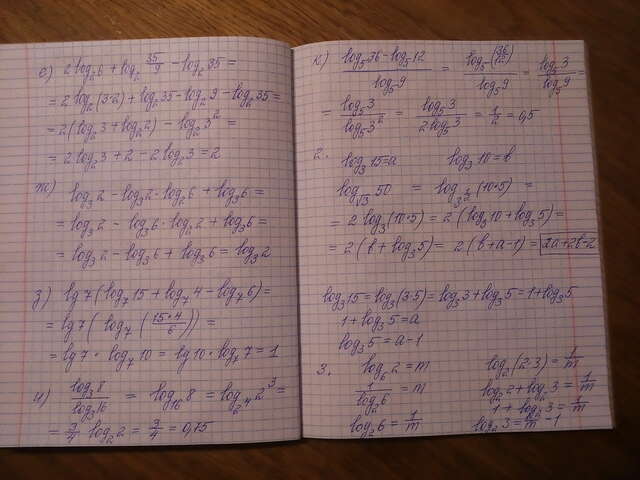 е) 2 log₂6 + log₂ 35/9 − log₂35 =
= 2 log₂(3·2) + log₂35 − log₂9 − log₂35 =
= 2(log₂3 + log₂2) − log₂3² =
= 2 log₂3 + 2 − 2 log₂3 = 2
ж) log₃2 − log₃2 · log₂6 + log₃6 =
= log₃2 − log₃6 · log₂2 + log₃6 =
= log₃2 − log₃6 + log₃6 = log₃2
з) lg7(log₇15 + log₇4 − log₇6) =
= lg7(log₇(15·4/6)) =
= lg7 · log₇10 = lg10 · log₇7 = 1
и) log₃8/log₃16 = log₁₆8 = log₂⁴2³ =
= 3/4 log₂2 = 3/4 = 0,75
к) (log₅36 − log₅12)/log₅9 = log₅(36/12)/log₅9 = log₅3/log₅9 =
= log₅3/log₅3² = log₅3/2log₅3 = 1/2 = 0,5
2. log₃15 = a log₃10 = b
log√3 50 = log₃^(1/2)(10·5) =
= 2 log₃(10·5) = 2(log₃10 + log₃5) =
= 2(b + log₃5) = 2(b + a − 1) = 2a + 2b − 2
log₃15 = log₃(3·5) = log₃3 + log₃5 = 1 + log₃5
1 + log₃5 = a
log₃5 = a − 1
3. log₆2 = m log₂(2·3) = 1/m
1/log₂6 = m log₂2 + log₂3 = 1/m
1 + log₂3 = 1/m
log₂6 = 1/m log₂3 = 1/m − 1